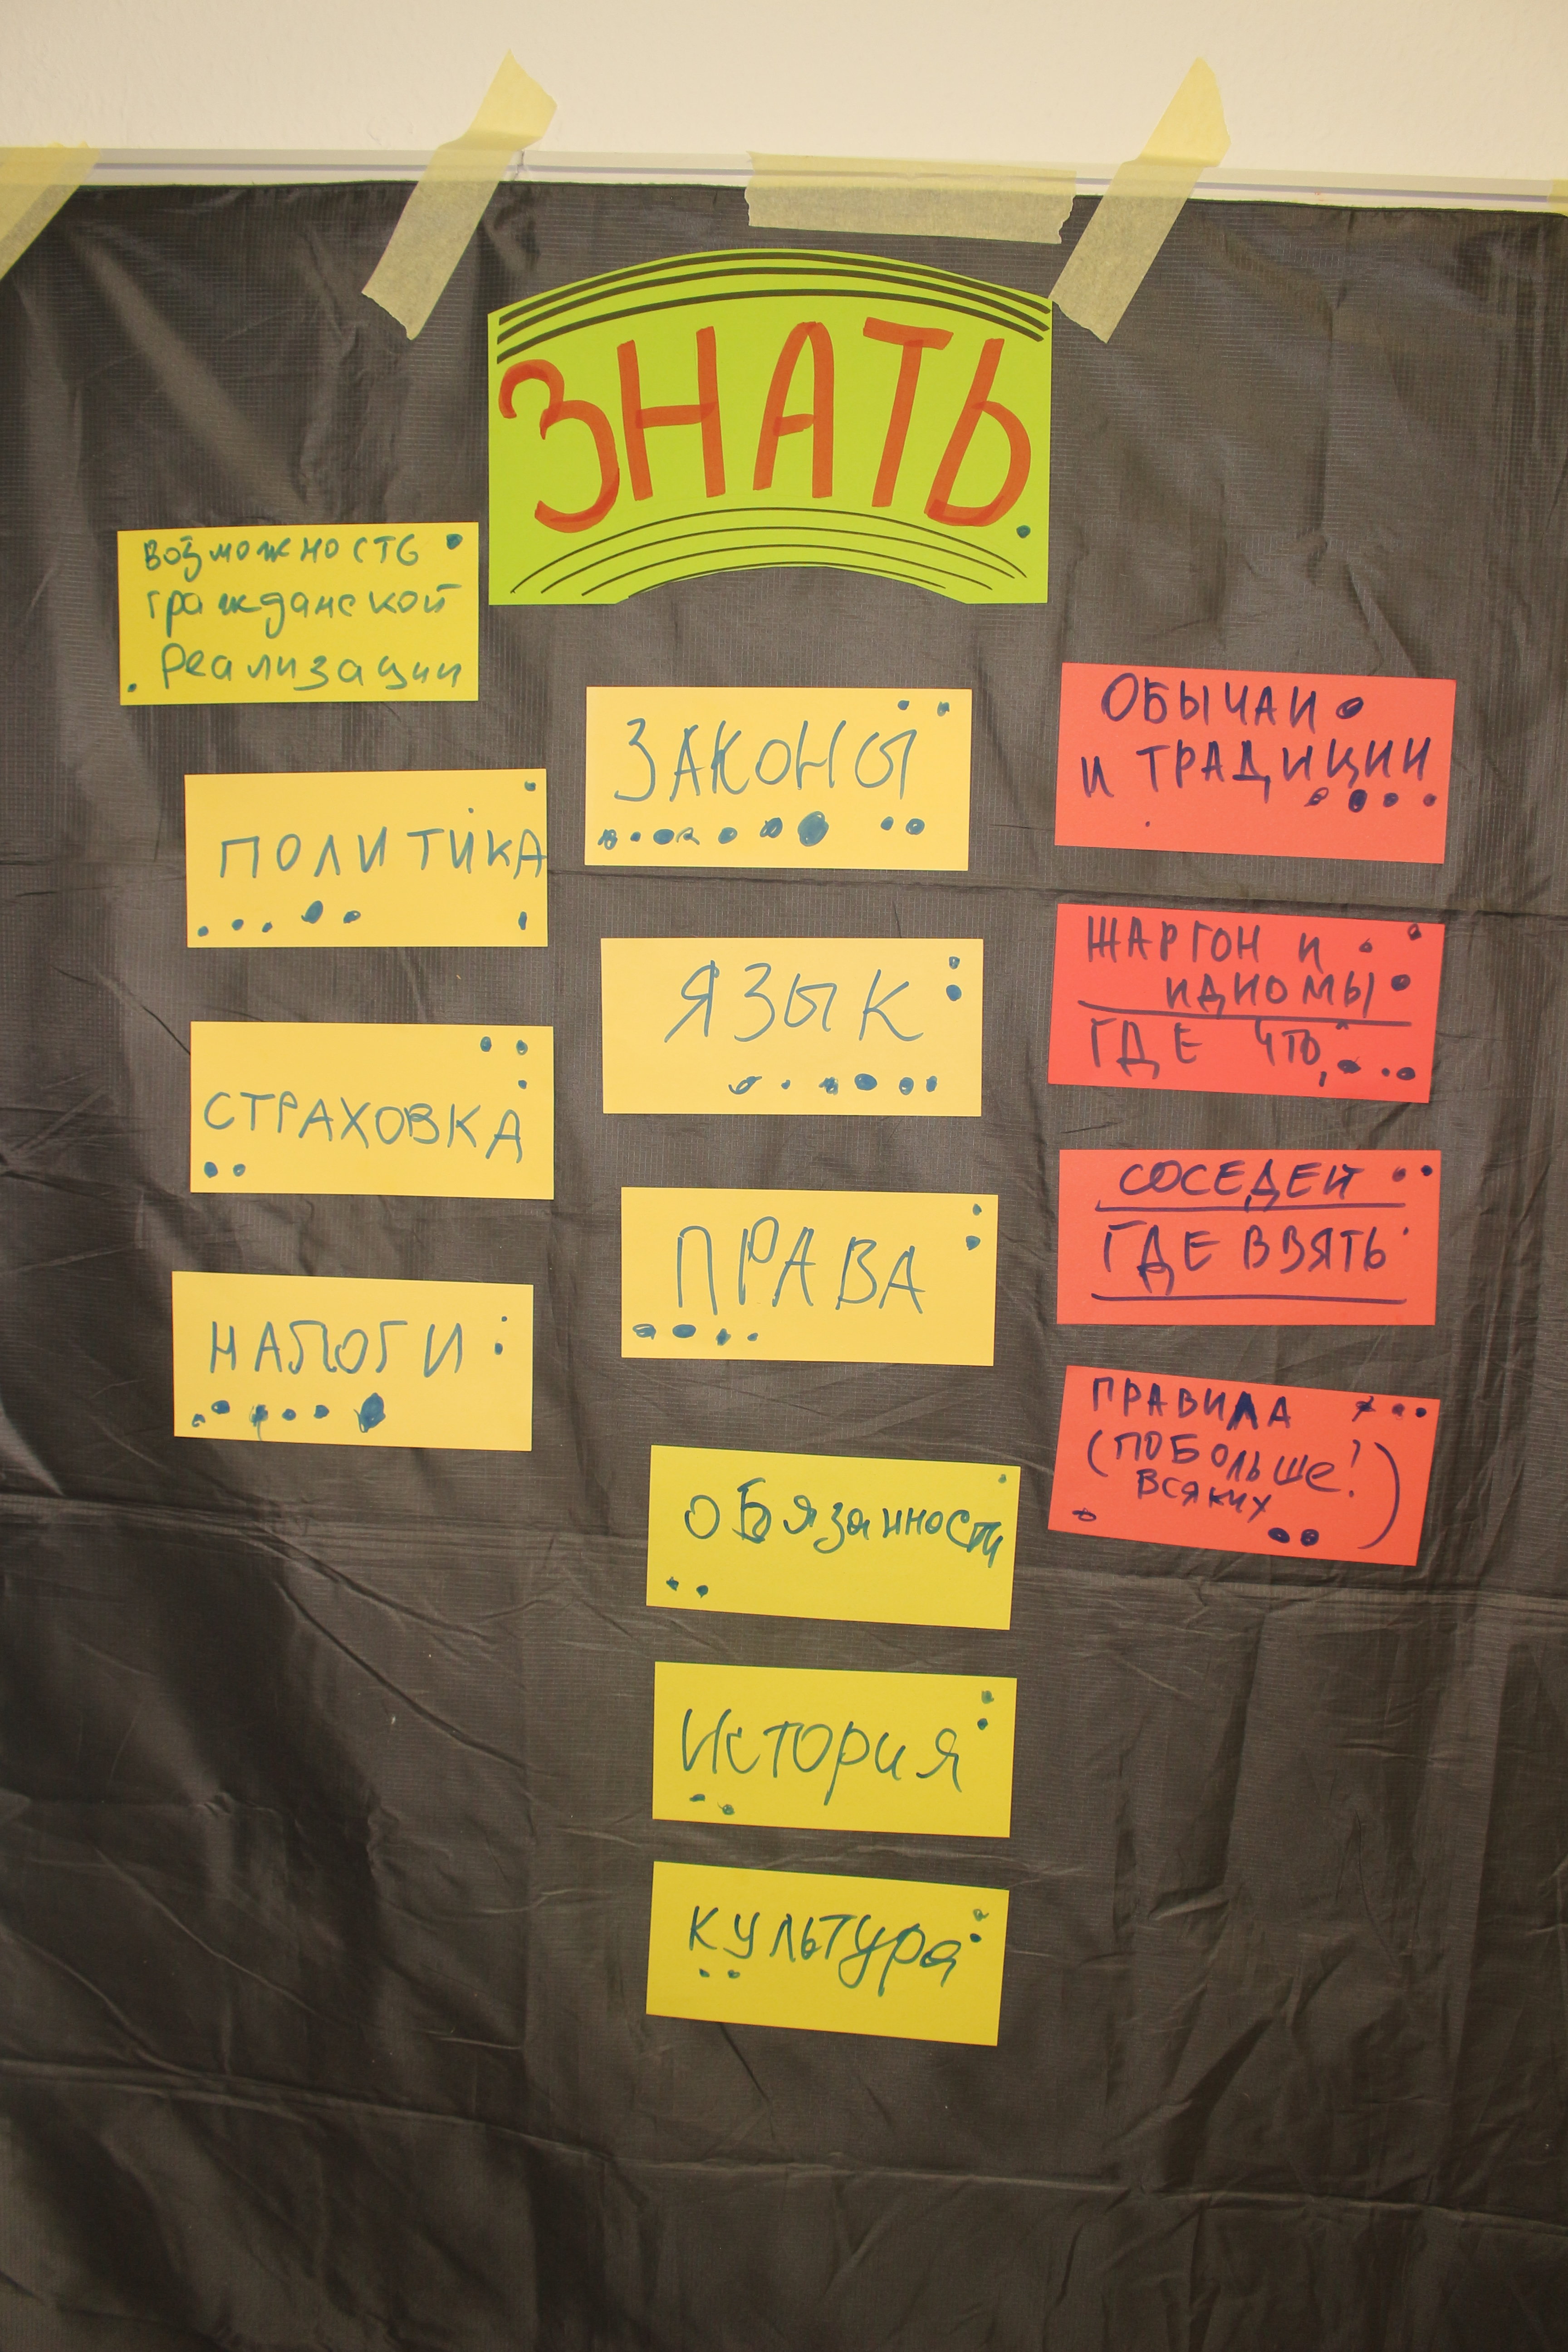 ЗНАТЬ.
возможность
гражданской
Реализации
ПОЛИТИКА
СТРАХОВКА
НАЛОГИ
ЗАКОНЫ
ЯЗЫК
ПРАВА
обязанности
История
культура
ОБЫЧАИ
И ТРАДИЦИИ
ЖАРГОН И
ИДИОМЫ
ГДЕ ЧТО,
СОСЕДЕЙ
ГДЕ ВЗЯТЬ
ПРАВИЛА
(ПОБОЛЬШЕ!
ВСЯКИХ)